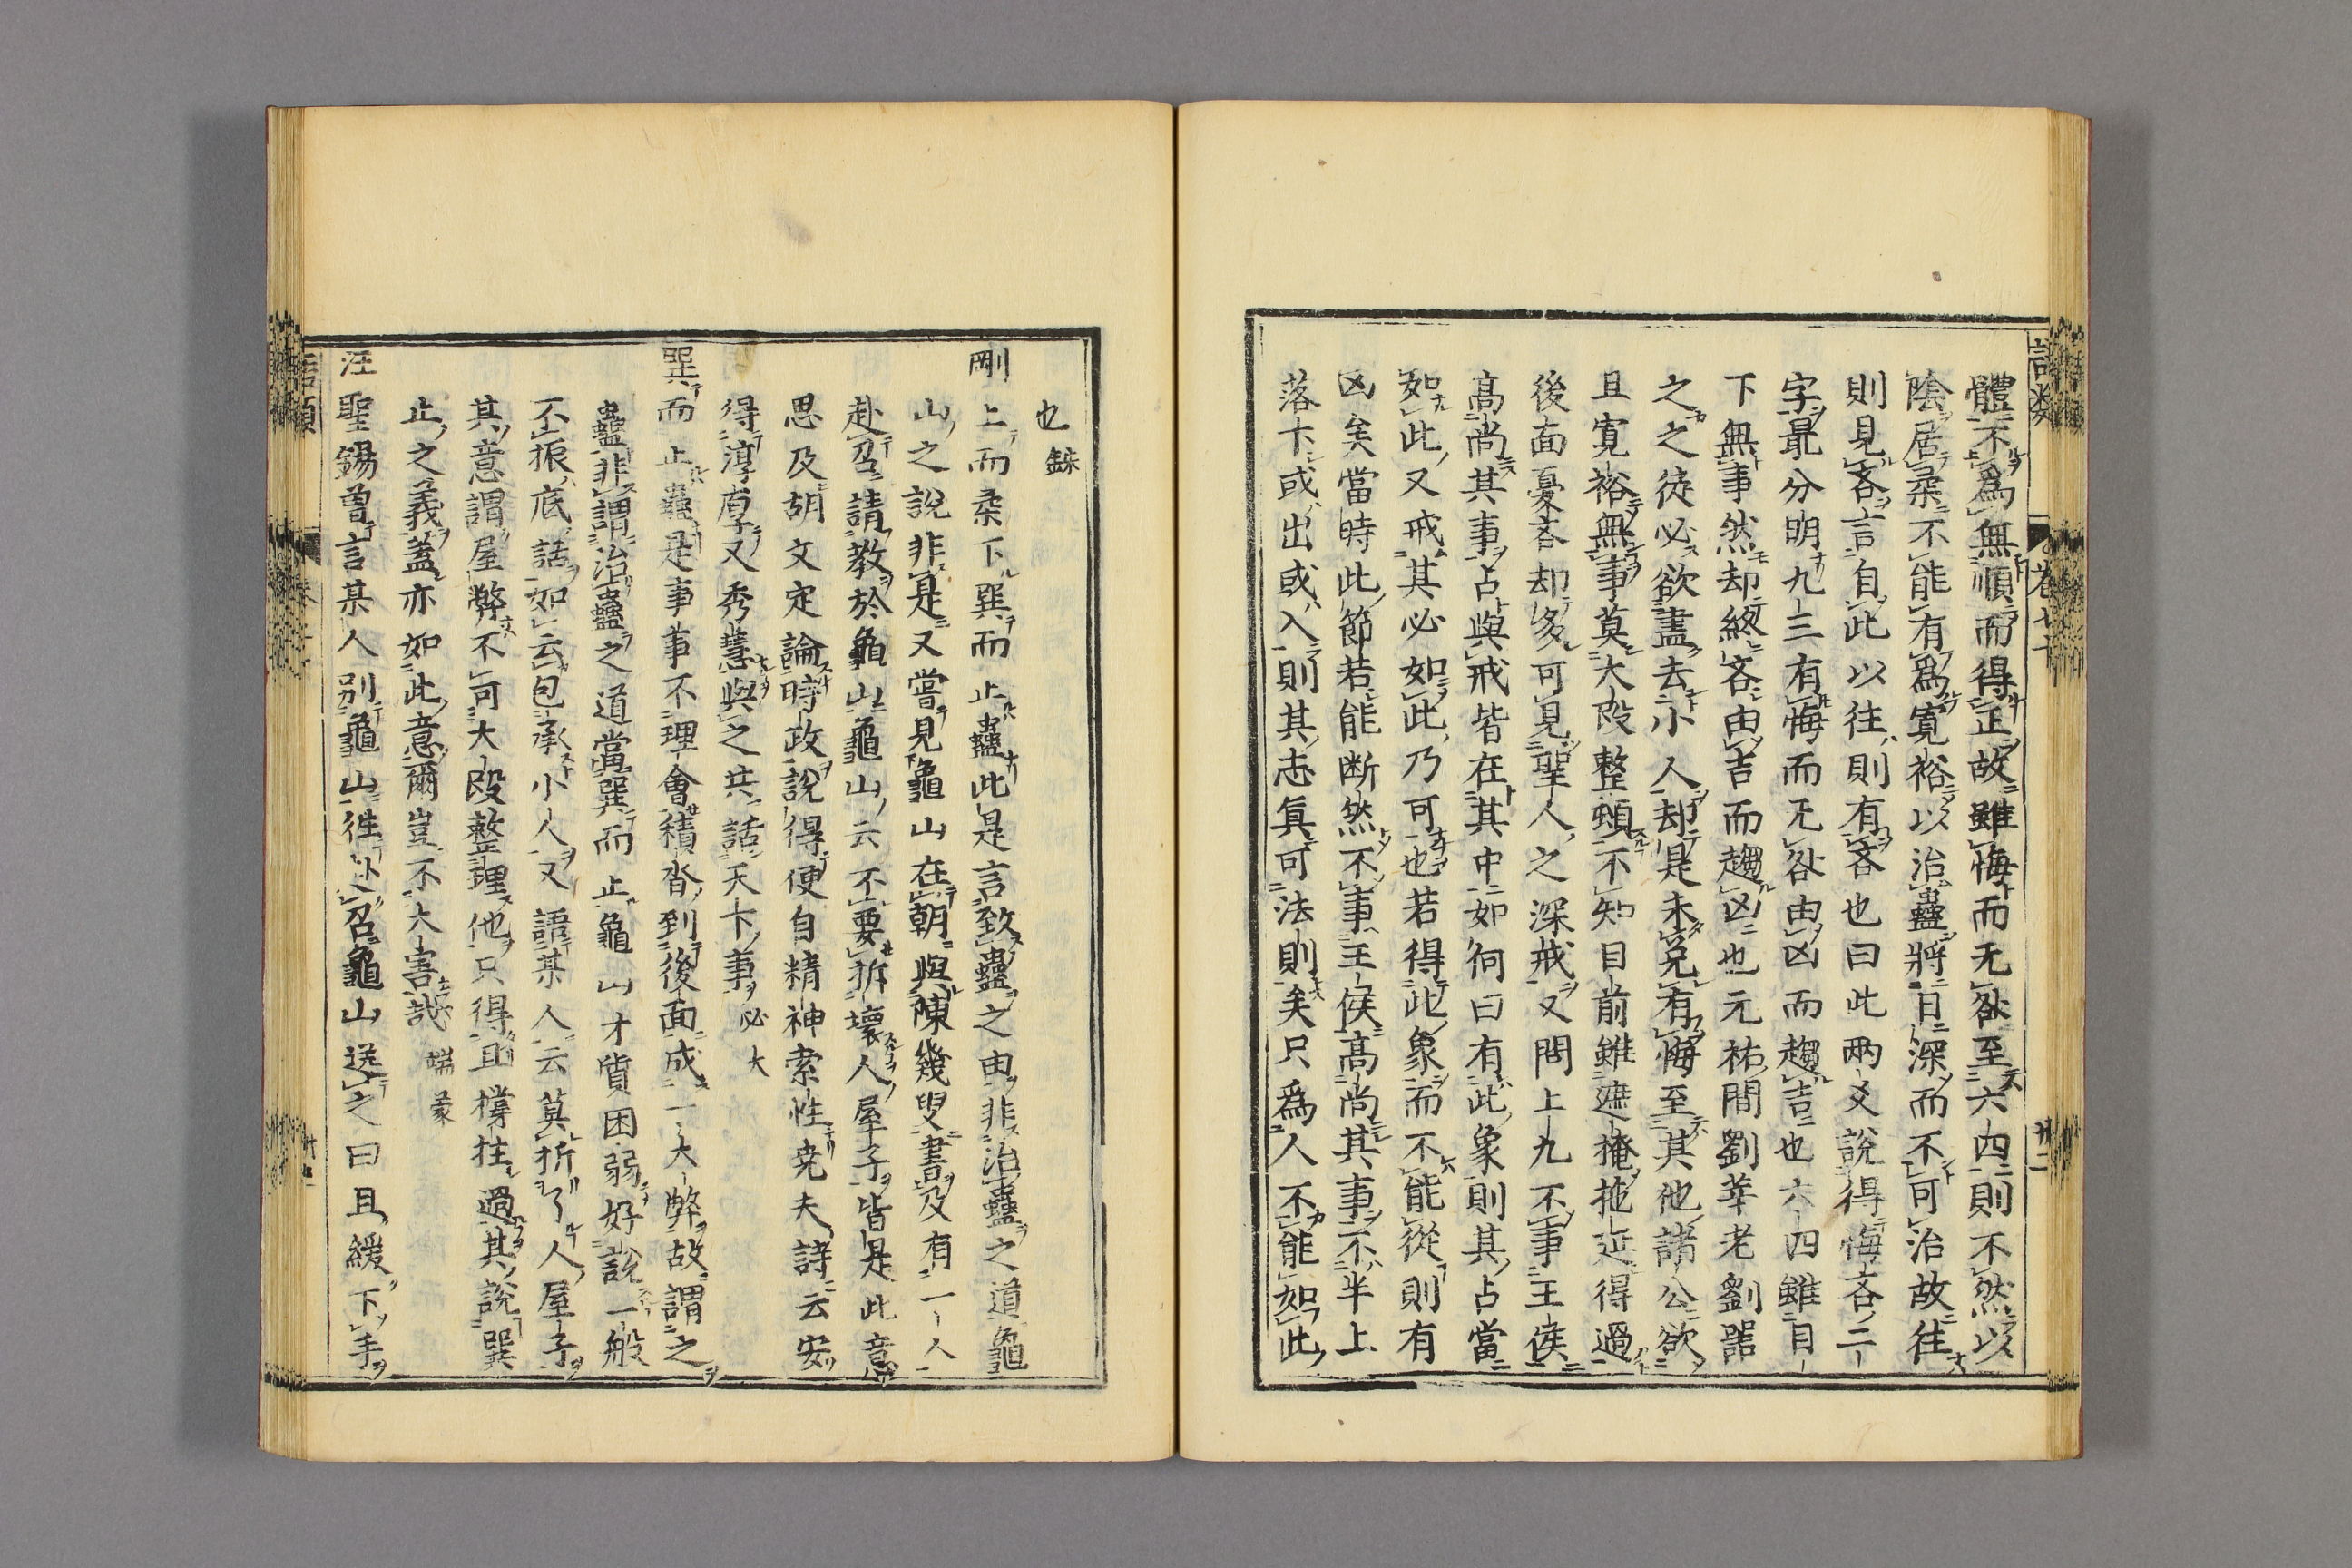 體不爲無順而得正故雖悔而无咎至六四則不然以
陰居柔不能有爲寬裕以治蠱將日深而不可治故往
則見吝言自此以往則有吝也曰此兩爻說得悔吝二
字最分明九三有悔而无咎由凶而趨吉也六四雖目
下無事然却終吝由吉而趨凶也元祐間劉莘老劉器
之之徒必欲盡去小人却是未免有悔至其他諸公欲
且寛裕無事莫大段整頓不知目前雖遮掩拖延得過
後面憂吝却多可見聖人之深戒又問上九不事王侯
高尚其事占與戒皆在其中如何曰有此象則其占當
如此又戒其必如此乃可也若得此象而不能從則有
凶矣當時此節若能断然不事王侯高尚其事不半上
落下或出或入則其志真可法則矣只爲人不能如此
也 銖
剛上而柔下巽而止蠱此是言致蠱之由非治蠱之道龜
山之說非是又嘗見龜山在朝與陳幾叟書及有一人
赴召請教於龜山龜山云不要拆壞人屋子皆是此意
思及胡文定論時政說得便自精神索性堯夫詩云安
得淳厚又秀慧與之共話天下事 必大
巽而止蠱是事事不理會積沓到後面成一大弊故謂之
蠱非謂治蠱之道當巽而止龜山才質困弱好說一般
不振底話如云包承小人又語某人云莫拆了人屋子
其意謂屋弊不可大段整理他只得且撐拄過其說巽
止之義蓋亦如此意爾豈不大害哉 端蒙
汪聖錫曾言某人別龜山往赴召龜山送之曰且緩下手
語類
卷七十
卅二